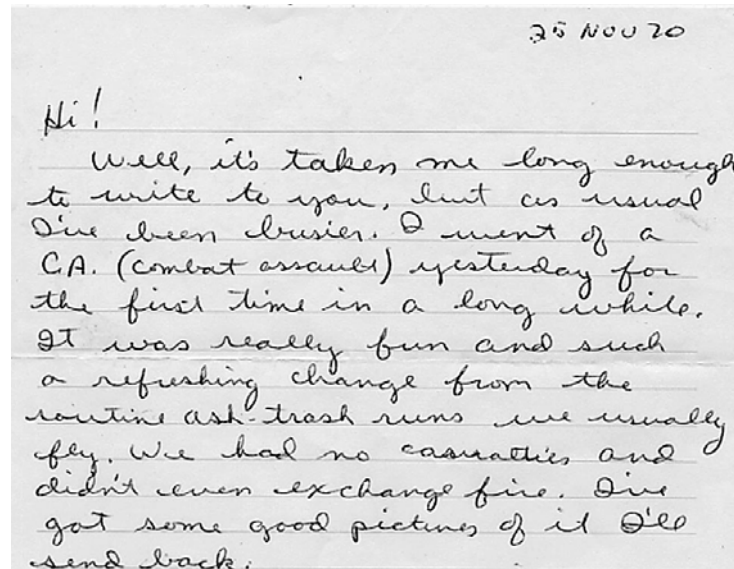 25 NOV 70
Hi!
Well, it's taken me long enough
to write to you, but as usual
I've been busier. I went of a
C.A. (combat assault) yesterday for
the first time in a long while.
It was really fun and such
a refreshing change from the
routine ash-trash runs we usually
fly. We had no casualties and
didn't even exchange fire. I've
got some good pictures of it I'll
send back.